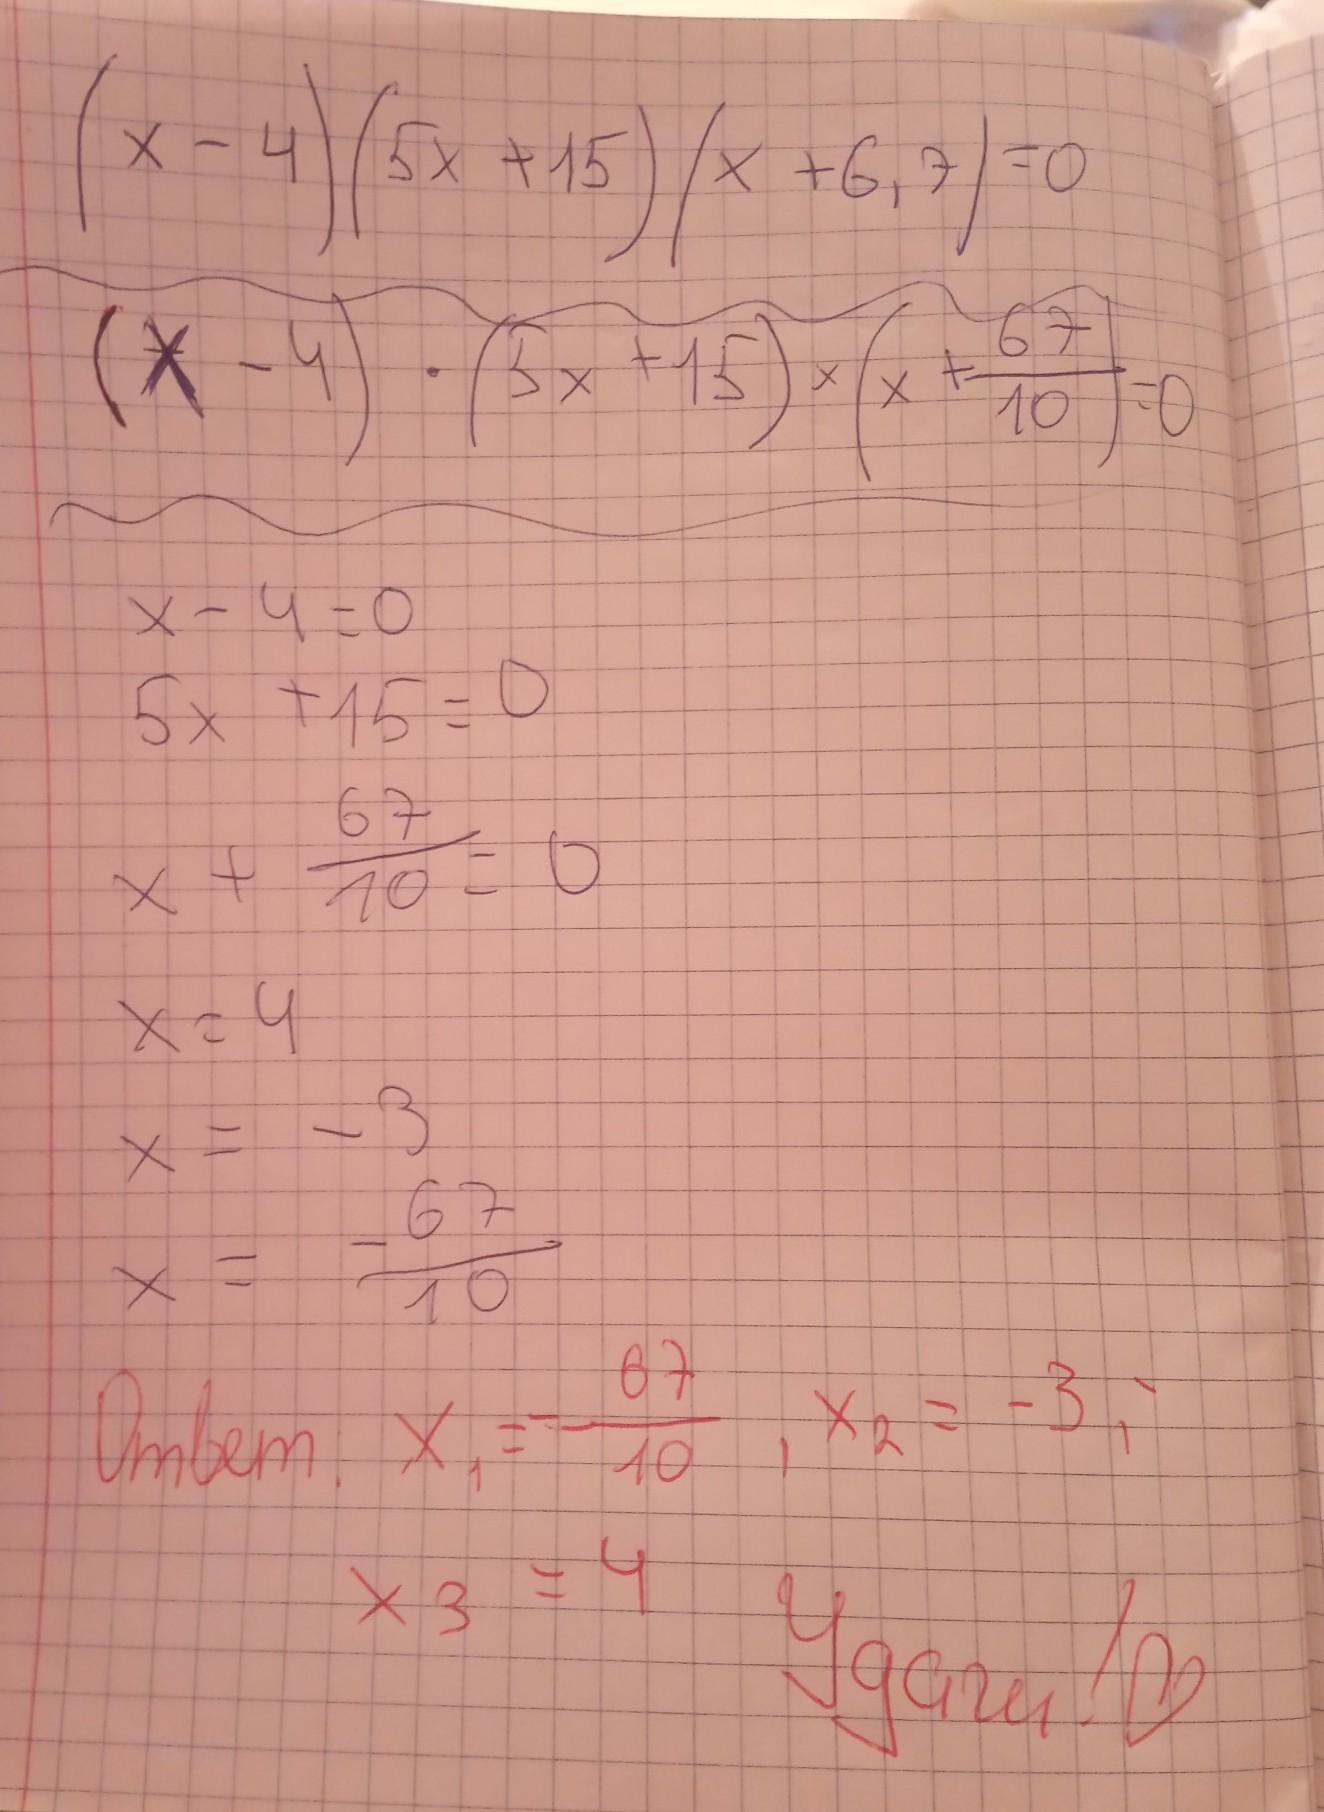 (x - 4)(5x + 15)(x + 6,7) = 0
(x - 4) · (5x + 15) × (x + 67/10) = 0
x - 4 = 0
5x + 15 = 0
x + 67/10 = 0
x = 4
x = -3
x = -67/10
Ответ: x₁ = -67/10, x₂ = -3,
x₃ = 4 Удачи!♡